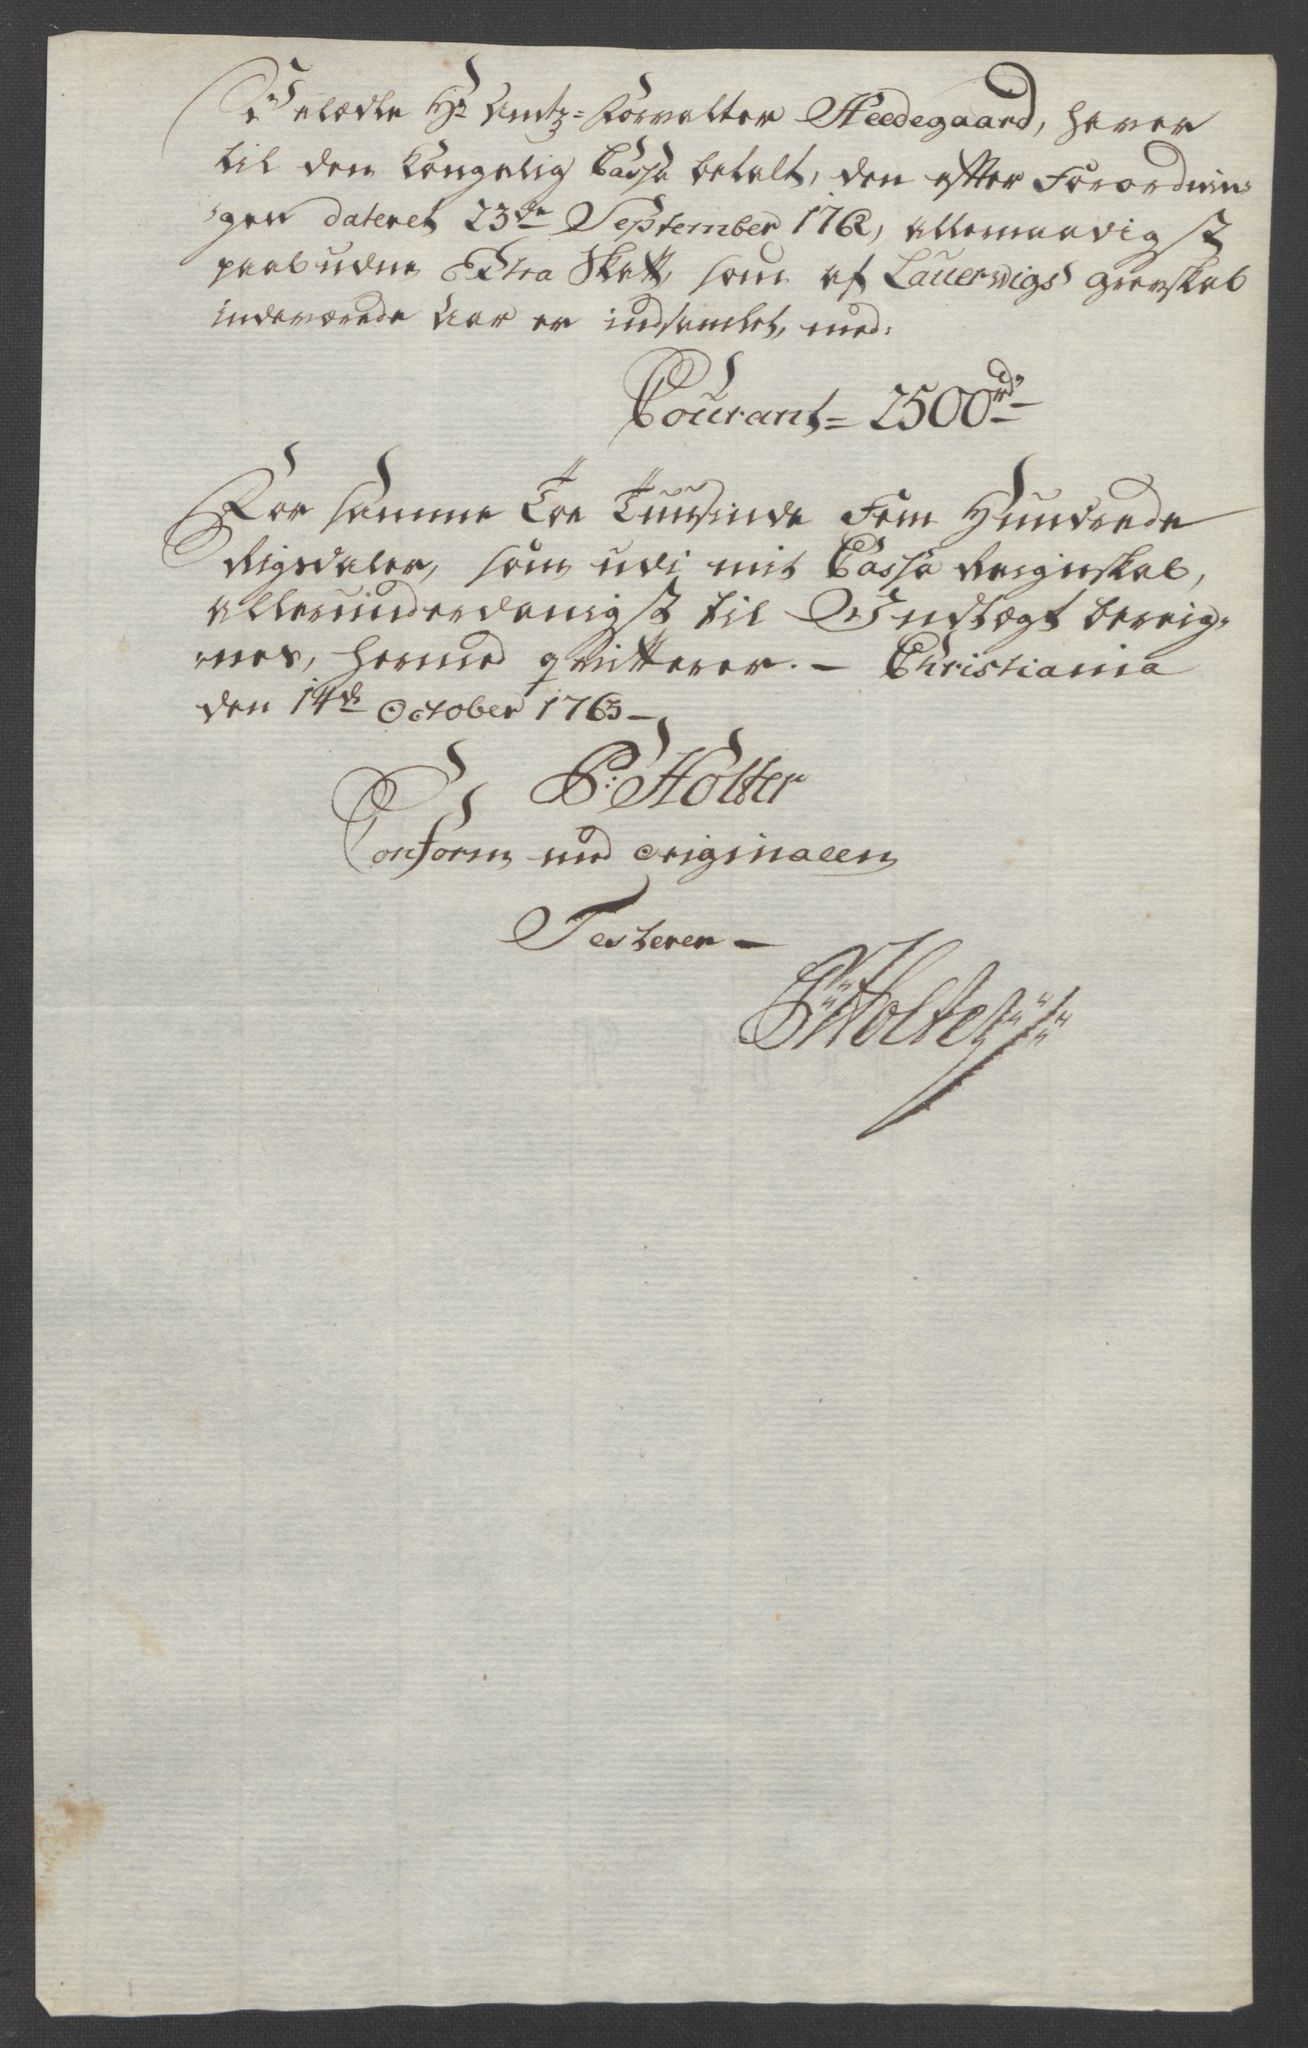 Velædle Hr Amtz-Forvalter Heedegaard, haver
til den Kongelig Cassa betalt, den efter Forordnin-
gen dateret 23de September 1762, allernaadigst
paabudne Extra Skatt, som af Lauerwigs Grevskab
indeværende Aar er indsamlet, med:
Courant = 2500rd
For samme Toe Tuusinde Fem Hundrede
Rigsdaler, som udi mit Cassa Reignskab,
allerunderdanigst til Indtægt bereig-
nes, hermed qvitterer. – Christiania
den 14de October 1763 –
P: Holter
Conform med originalen
Testerer –
P Holter